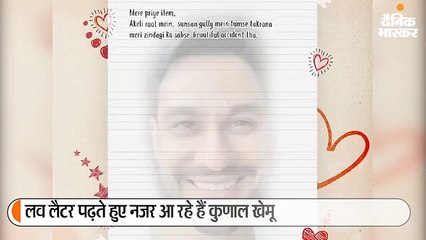 दैनिक
भास्कर
Mere priye item,
Akeli raat mein, sunsan gully mein tumse takrana
meri zindagi ka sabse beautiful accident tha.
लव लैटर पढ़ते हुए नजर आ रहे हैं कुणाल खेमू